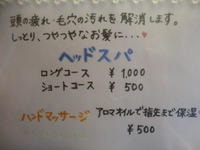 頭の疲れ・毛穴の汚れを解消します。
しっとり、つやつやなお髪に...♥
ヘッドスパ
ロングコース ¥1,000
ショートコース ¥500
ハンドマッサージ アロマオイルで指先まで保湿
¥500